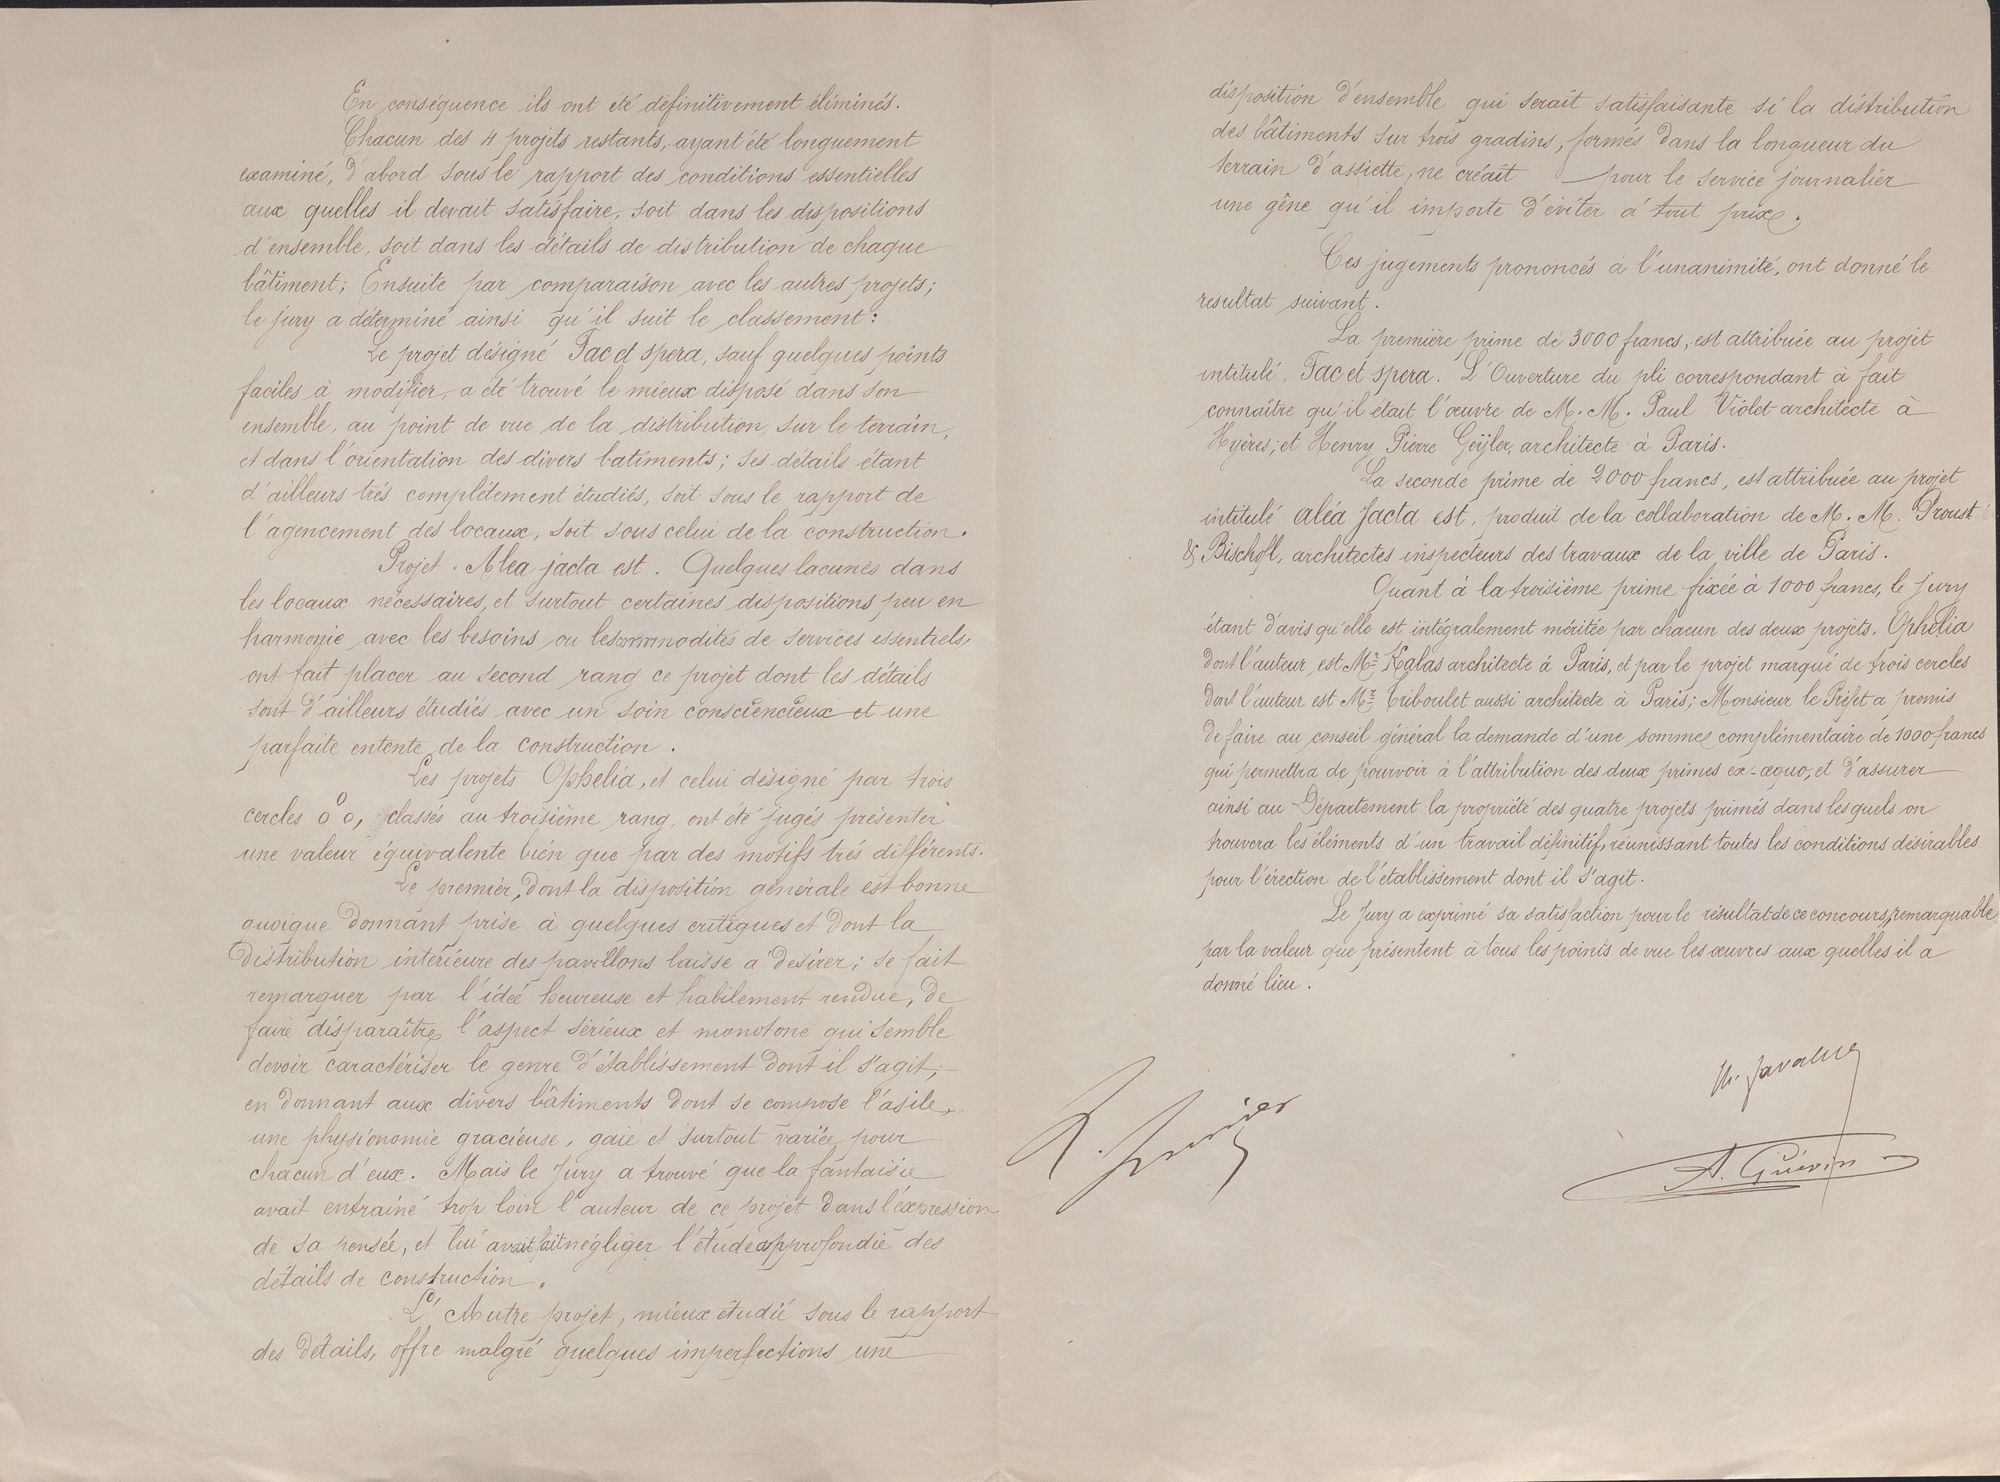 En conséquence ils ont été définitivement éliminés.
Chacun des 4 projets restants, ayant été longuement
examiné, d'abord sous le rapport des conditions essentielles
aux quelles il devait satisfaire, soit dans les dispositions
d'ensemble, soit dans les détails de distribution de chaque
bâtiment; Ensuite par comparaison avec les autres projets;
le jury a déterminé ainsi qu'il suit le classement:
Le projet désigné Fac et spera, sauf quelques points
faciles à modifier, a été trouvé le mieux disposé dans son
ensemble, au point de vue de la distribution sur le terrain,
et dans l'orientation des divers batiments; ses détails étant
d'ailleurs très complétement étudiés, soit sous le rapport de
l'agencement des locaux, soit sous celui de la construction.
Projet. Alea jacta est. Quelques lacunes dans
les locaux nécessaires, et surtout certaines dispositions peu en
harmonie avec les besoins ou les commodités de services essentiels,
ont fait placer au second rang ce projet dont les détails
sont d'ailleurs étudiés avec un soin consciencieux et une
parfaite entente de la construction.
Les projets Ophélia, et celui désigné par trois
cercles o o o, classés au troisième rang, ont été jugés présenter
une valeur équivalente bien que par des motifs très différents.
Le premier, dont la disposition générale est bonne
quoique donnant prise à quelques critiques et dont la
distribution intérieure des pavillons laisse a desirer; se fait
remarquer par l'idée heureuse et habilement rendue, de
faire disparaître l'aspect sérieux et monotone qui semble
devoir caractériser le genre d'établissement dont il s'agit,
en donnant aux divers bâtiments dont se compose l'asile,
une physionomie gracieuse, gaie et surtout variée pour
chacun d'eux. Mais le Jury a trouvé que la fantaisie
avait entraîné trop loin l'auteur de ce projet dans l'expression
de sa pensée, et lui avait fait négliger l'étude approfondie des
détails de construction.
L'Autre projet, mieux étudié sous le rapport
des détails, offre malgré quelques imperfections une
disposition d'ensemble qui serait satisfaisante si la distribution
des bâtiments sur trois gradins, formés dans la longueur du
terrain d'assiette, ne créait pour le service journalier
une gêne qu'il importe d'éviter à tout prix.
Ces jugements prononcés à l'unanimité, ont donné le
résultat suivant.
La première prime de 3000 francs, est attribuée au projet
intitulé, Fac et spera. L'Ouverture du pli correspondant à fait
connaître qu'il était l'œuvre de M. M. Paul Violet architecte à
Hyères; et Henry, Pierre Geÿler, architecte à Paris.
La seconde prime de 2000 francs, est attribuée au projet
intitulé aléa Jacta est, produit de la collaboration de M. M. Proust
& Bischoff, architectes inspecteurs des travaux de la ville de Paris.
Quant à la troisième prime fixée à 1000 francs, le Jury
étant d'avis qu'elle est intégralement méritée par chacun des deux projets. Ophélia
dont l'auteur est Mr Kalas architecte à Paris, et par le projet marqué de trois cercles
dont l'auteur est Mr Triboulet aussi architecte à Paris; Monsieur le Préfet a promis
de faire au conseil général la demande d'une somme complémentaire de 1000 francs
qui permettra de pourvoir à l'attribution des deux primes ex-æquo, et d'assurer
ainsi au Département la propriété des quatre projets primés dans lesquels on
trouvera les éléments d'un travail définitif, réunissant toutes les conditions désirables
pour l'érection de l'établissement dont il s'agit.
Le Jury a exprimé sa satisfaction pour le résultat de ce concours, remarquable
par la valeur que présentent à tous les points de vue les œuvres aux quelles il a
donné lieu.
A. Guérin